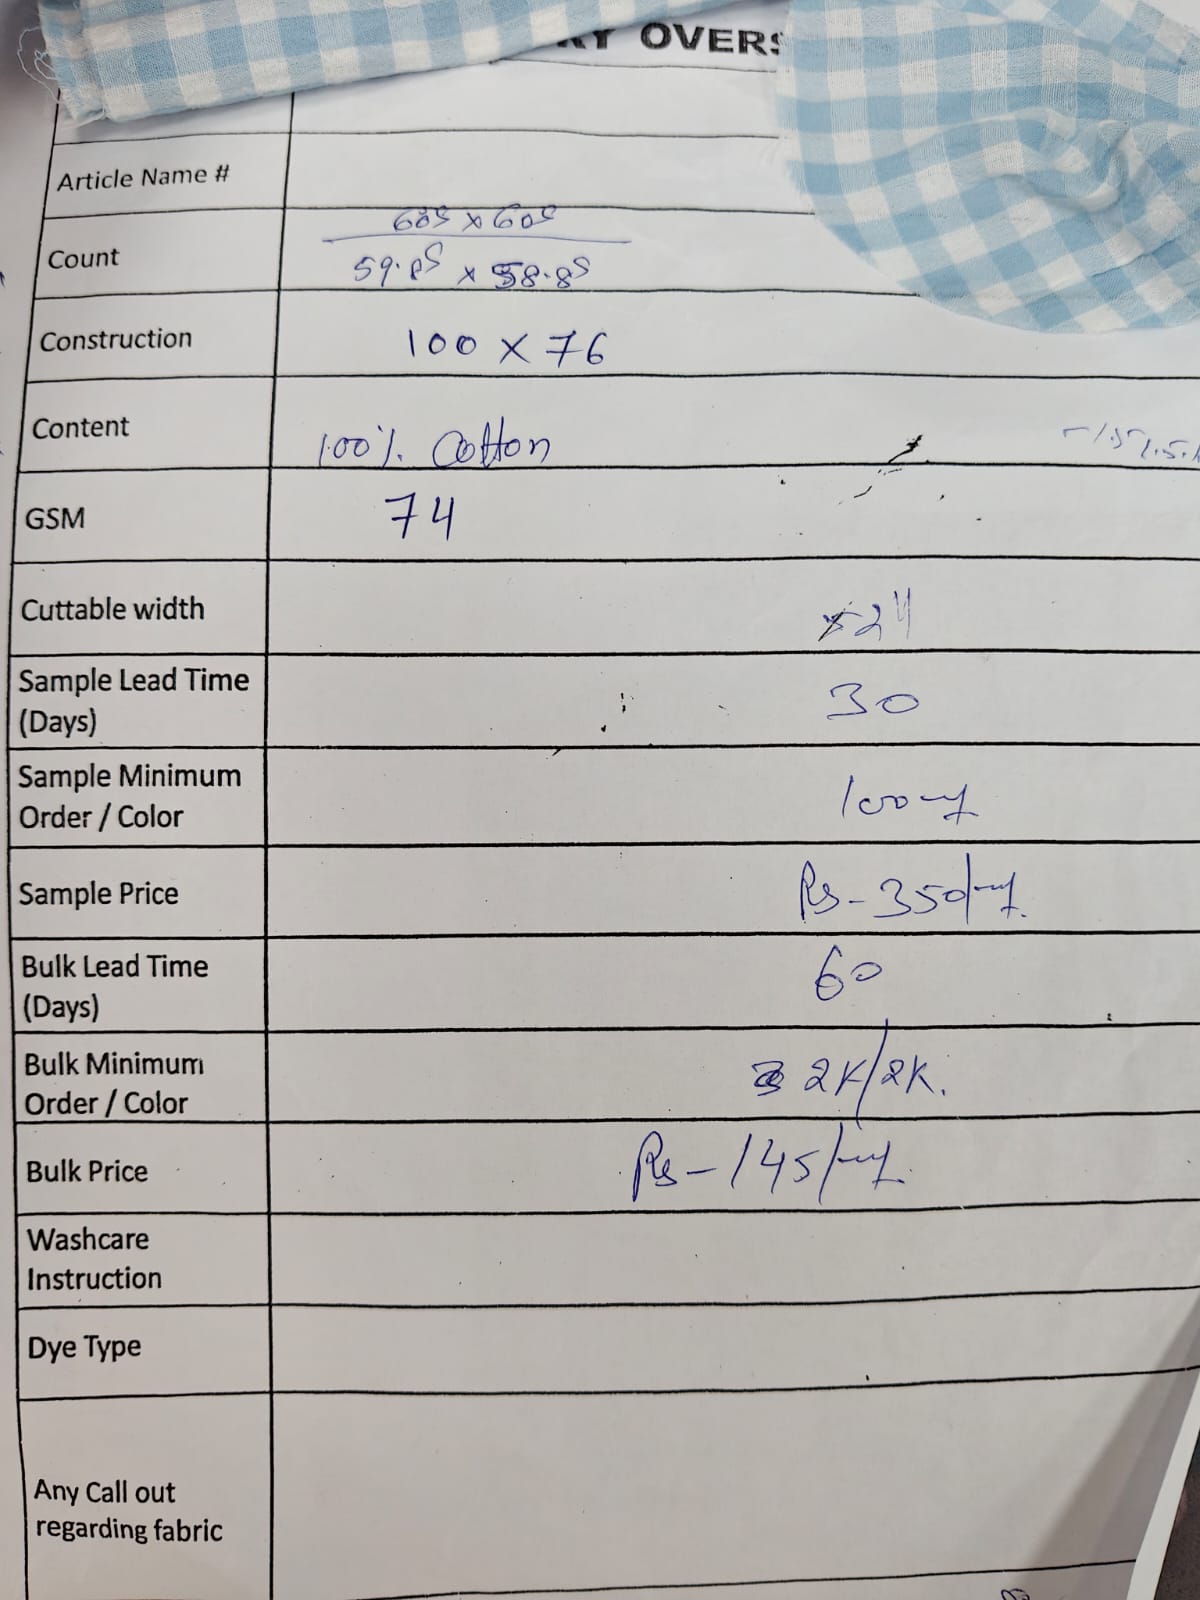 OVERS
Article Name #
Count
60s x 60s
59.8s x 58.8s
Construction
100 X 76
Content
100%. Cotton
GSM
74
Cuttable width
Sample Lead Time
(Days)
30
Sample Minimum
Order / Color
100
Sample Price
Rs - 350/-
Bulk Lead Time
(Days)
60
Bulk Minimum
Order / Color
2K/2K.
Bulk Price
Rs - 145/
Washcare
Instruction
Dye Type
Any Call out
regarding fabric